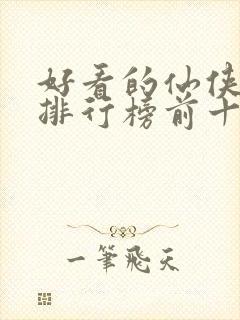 好看的仙侠
排行榜前十
一筆飛天